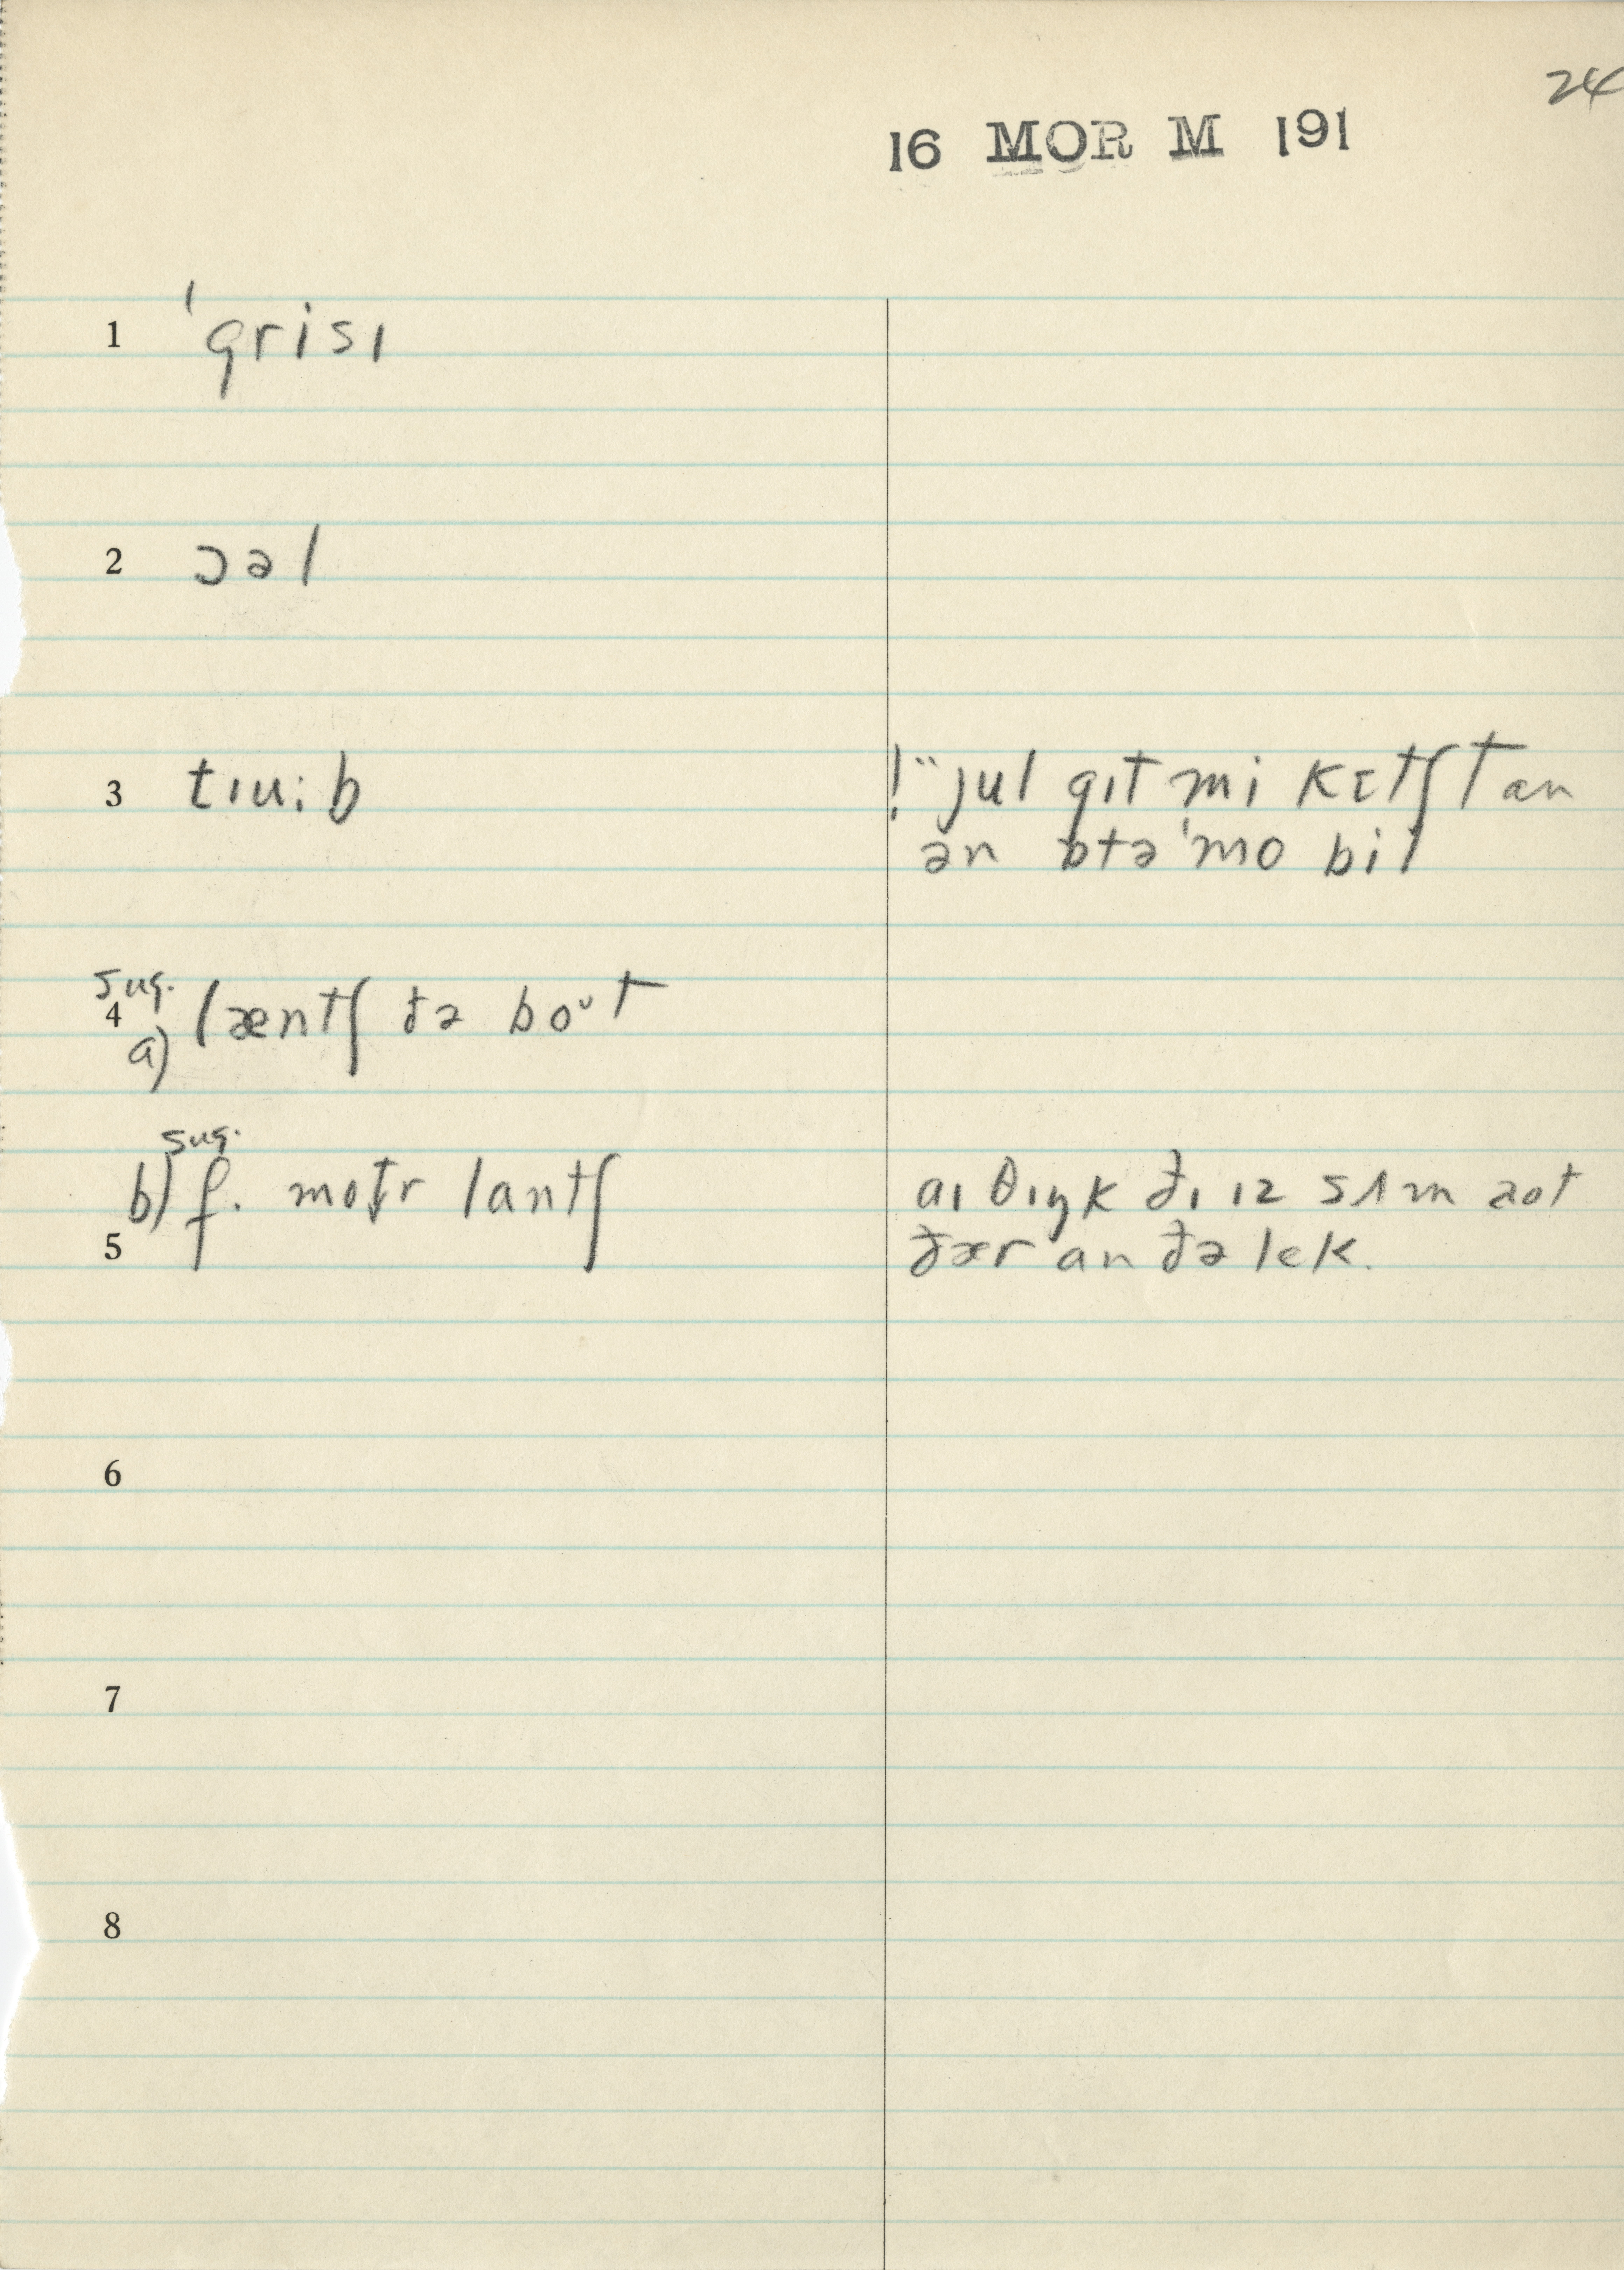 24
16 MOR M 191
1 ˈgrisɪ
2 ɔəl
3 tɪuːb
!¨ jul gɪt mi kɛtʃt an
ən ɒtəˈmobil
sug.
4 a) læntʃ ðə boᵘt
sug.
b) f. motr lantʃ
aɪ θɪŋk ðɪ ɪz sʌm aot
5
ðær an ðə lek.
6
7
8